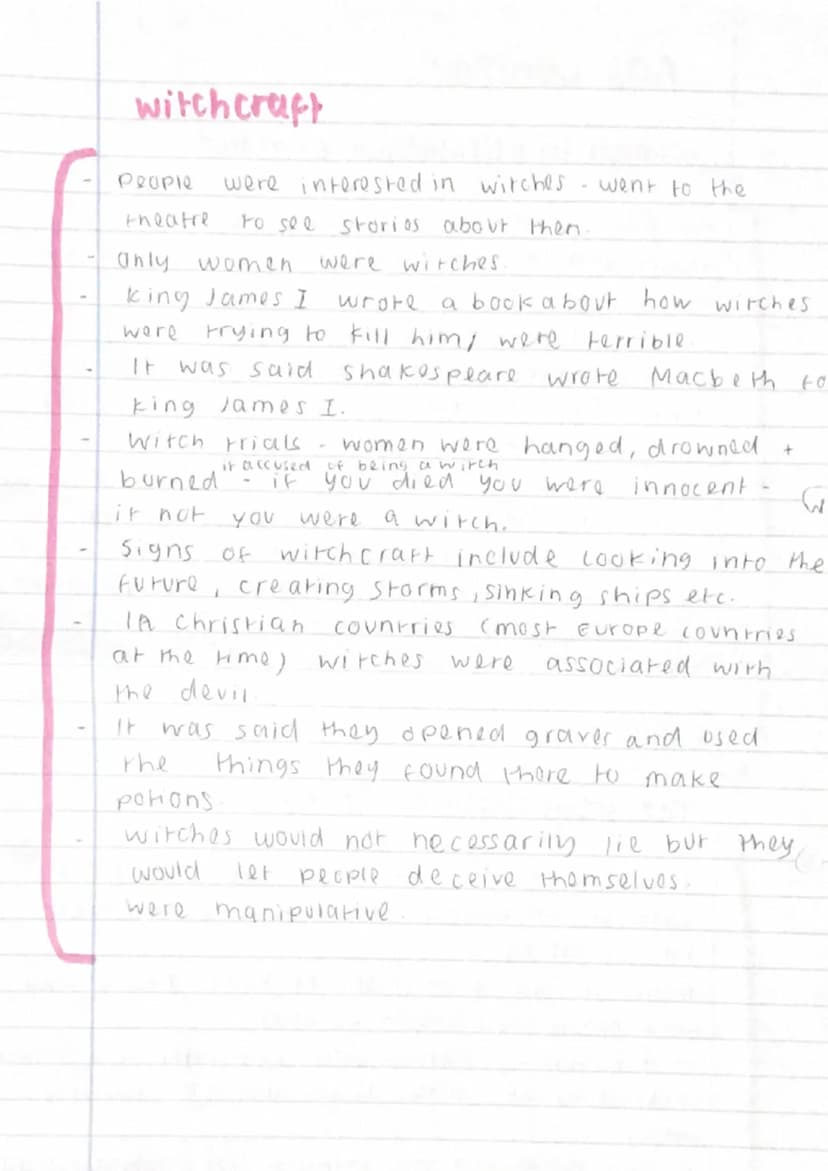 witchcraft
- people were interested in witches - went to the
theatre to see stories about then.
- only women were witches.
- King James I wrote a book about how witches
were trying to kill him, were terrible.
- It was said shakespeare wrote Macbeth to
King James I.
- witch trials - women were hanged, drowned +
if accused of being a witch
burned - if you died you were innocent -
if not you were a witch.
- Signs of witchcraft include looking into the
future, creating storms, sinking ships etc.
- In christian countries (most Europe countries
at the time) witches were associated with
the devil.
- It was said they opened graves and used
the things they found there to make
potions.
- witches would not necessarily lie but they
would let people deceive themselves.
were manipulative.